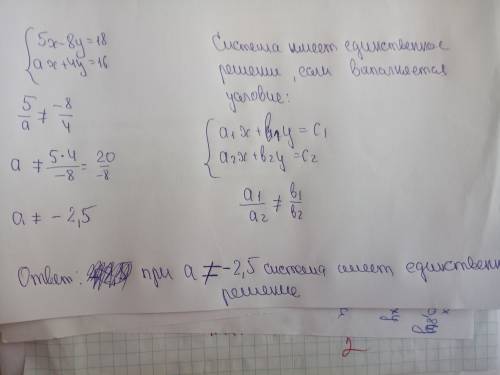 5x-8y=18
ax+4y=16
5/a ≠ -8/4
a ≠ 5·4/-8 = 20/-8
a ≠ -2,5
Система имеет единственное
решении, если выполняется
условие:
a₁x+b₁y=c₁
a₂x+b₂y=c₂
a₁/a₂ ≠ b₁/b₂
Ответ: при a ≠ -2,5 система имеет единствен
решение
2